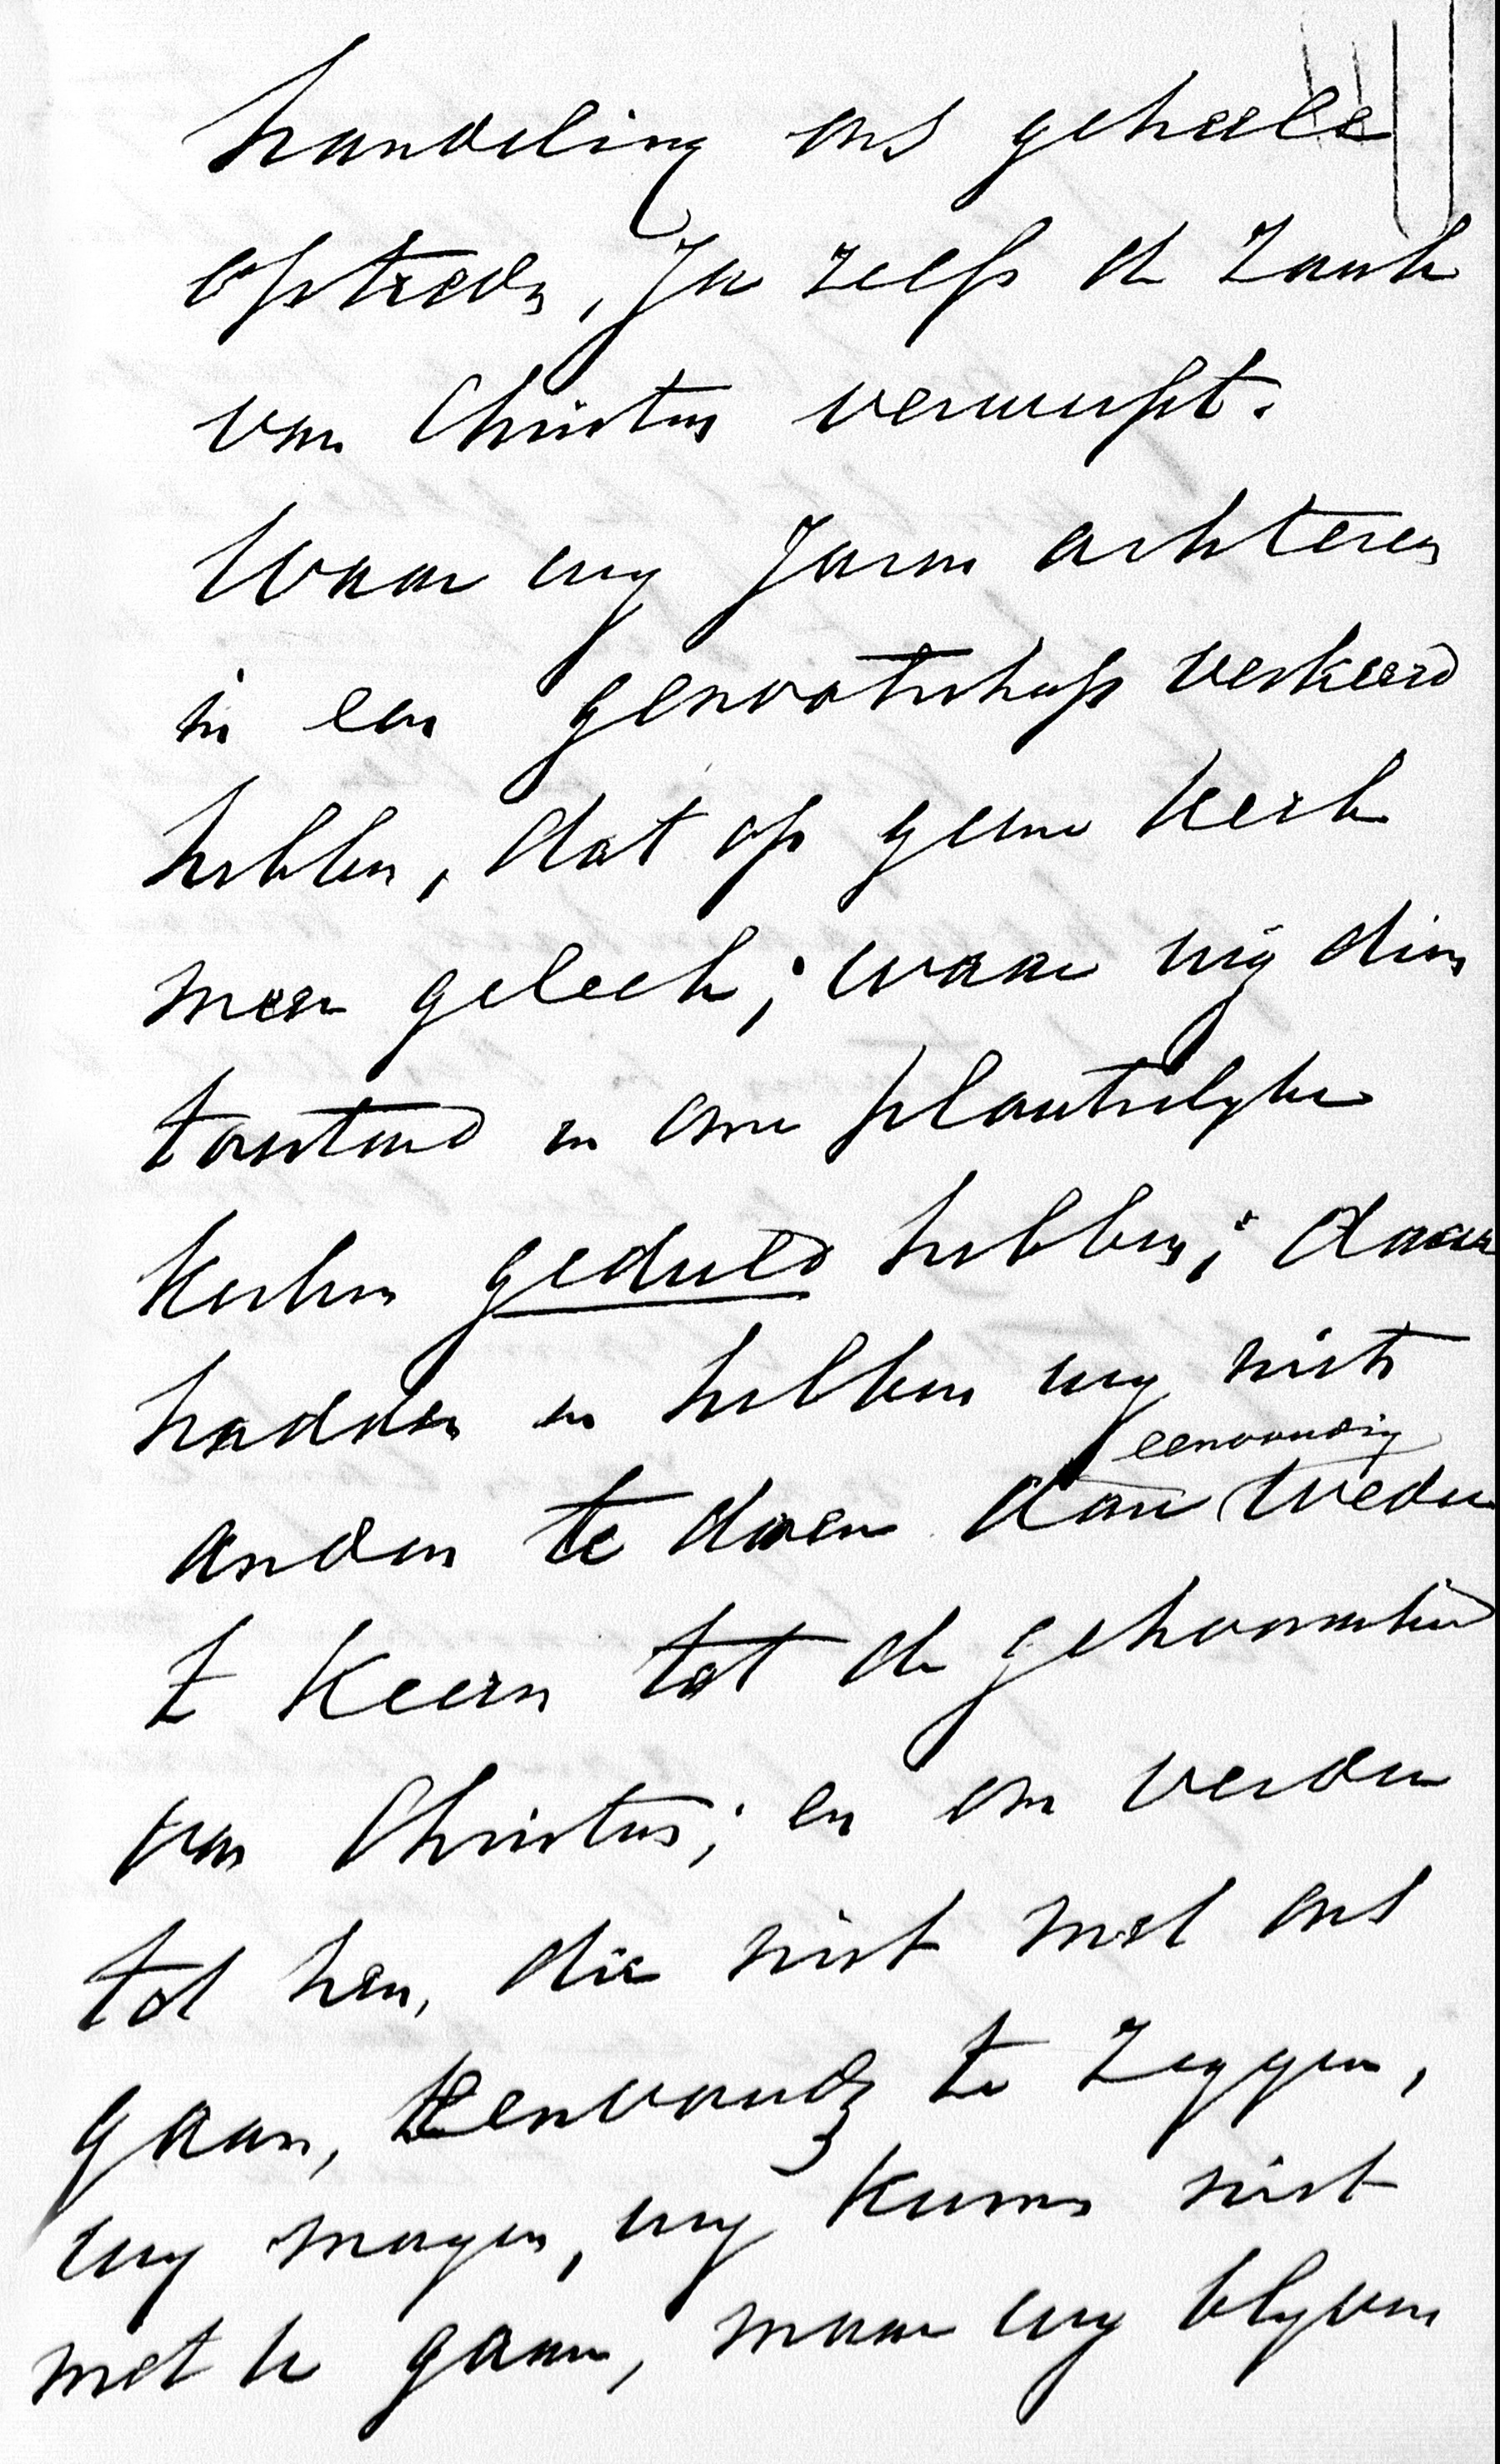 handeling ons geheele
optreden, Ja zelfs de Zaak
van Christus verwerpt.
Waar wy Jaren achtereen
in een genootschap verkeerd
hebben, dat op geene Kerk
meer geleek; waar wij dien
toestand in onze plaatselyke
Kerken geduld hebben; daar
hadden en hebben wy niets
eenvoudig
anders te doen dan Weder
te Keeren tot de gehoorzaamheid
van Christus; en om verder
tot hen, die niet met ons
gaan, eenvoudig te Zeggen,
wy mogen, wy Kunnen niet
met U gaan, maar wy blyven